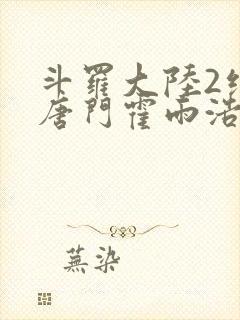 斗羅大陸2
唐門霍雨浩
蕪染